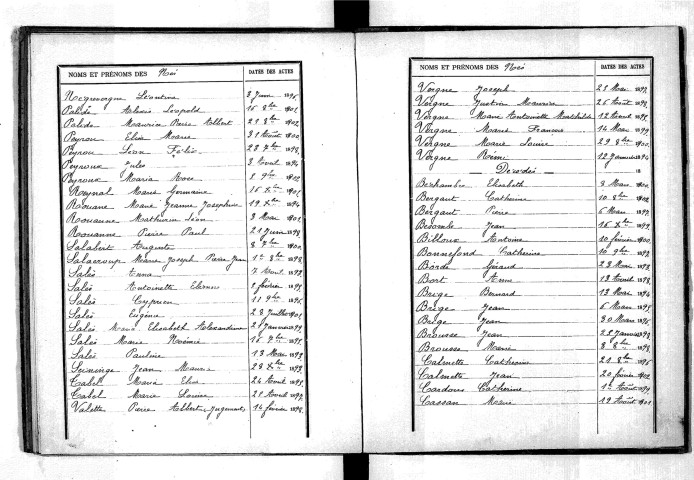 NOMS ET PRÉNOMS DES Nés DATES DES ACTES
Léontine 3 Juin
Palède Alexis Léopold 16 8bre 1901
Palède Maurice Pierre Albert 23 8bre 1902
Peyrou Elie Marie 31 Août 1900
Peyrou Léon Félix 28 7bre 1898
Peyroux Jules 3 Avril 1894
Peyroux Maria Rose 1 9bre 1902
Raynal Marie Germaine 16 Xbre 1901
Rouane Marie Jeanne Joséphine 19 Xbre 1894
Rouanne Mathurin Léon 3 Mai 1901
Rouanne Pierre Paul 21 Juin 1898
Salabert Auguste 8 7bre 1900
Marie Joseph Pierre Jean 1er 8bre 1898
Salès Anna 7 Avril 1897
Salès Antoinette Etienne 1 février 1895
Salès Cyprien 11 9bre 1895
Salès Eugène 28 Juillet 1901
Salès Marie Elisabeth Alexandrine 21 Janvier 1899
Salès Marie Noémie 16 7bre 1895
Salès Pauline 13 Mars 1899
Jean Marie 28 8bre 1893
Cabel Marie Elise 24 Août 1895
Cabel Marie Louise 21 Avril 1897
Valette Pierre Albert (Jugement) 14 février 1898
NOMS ET PRÉNOMS DES Nés DATES DES ACTES
Vergne Joseph 25 Mai 1897
Vergne Justin Maurice 26 Août 1899
Vergne Marie Antoinette Mathilde 12 Août 1895
Vergne Marie France 14 Mars 1899
Vergne Marie Louise 29 8bre 1900
Vergne Rémi 12 Janvier 1894
Décédés 18
Elisabeth 3 Mars 1900
Bergaut Catherine 10 8bre 1902
Bergaut Pierre 6 Mars 1899
Bescombe Jean 16 Xbre 1899
Antoine 10 février 1900
Bonnefond Catherine 10 9bre 1897
Borde Géraud 28 Mai 1898
Bort Anne 13 Avril 1898
Brège Bernard 13 Mai 1894
Brège Jean 6 Mars 1895
Brège Jean 30 Mars 1895
Brousse Jean 28 Janvier 1898
Brousse Marie 8 8bre 1898
Calmette Catherine 21 8bre 1895
Calmette Jean 20 février 1902
Cardone Catherine 1er Août 1899
Cassan Marie 19 Août 1901